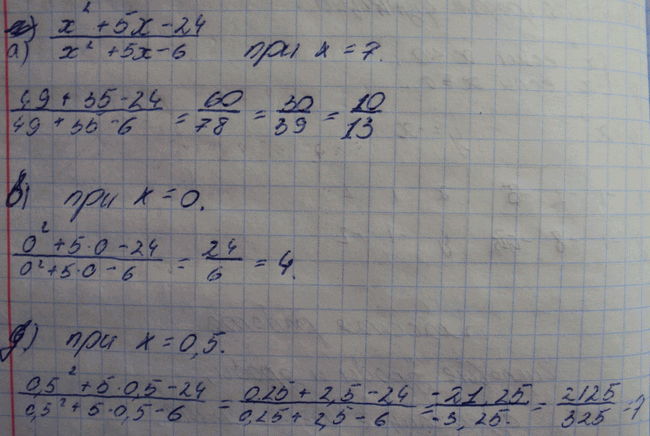 а) (x² + 5x - 24)/(x² + 5x - 6) при x = 7.
(49 + 35 - 24)/(49 + 35 - 6) = 60/78 = 30/39 = 10/13
в) при x = 0.
(0² + 5·0 - 24)/(0² + 5·0 - 6) = 24/6 = 4.
д) при x = 0,5.
(0,5² + 5·0,5 - 24)/(0,5² + 5·0,5 - 6) = (0,25 + 2,5 - 24)/(0,25 + 2,5 - 6) = -21,25/-3,25. = 2125/325 =